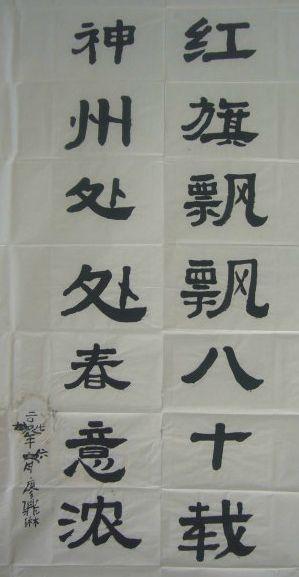 红旗飘飘八十载
神州处处春意浓